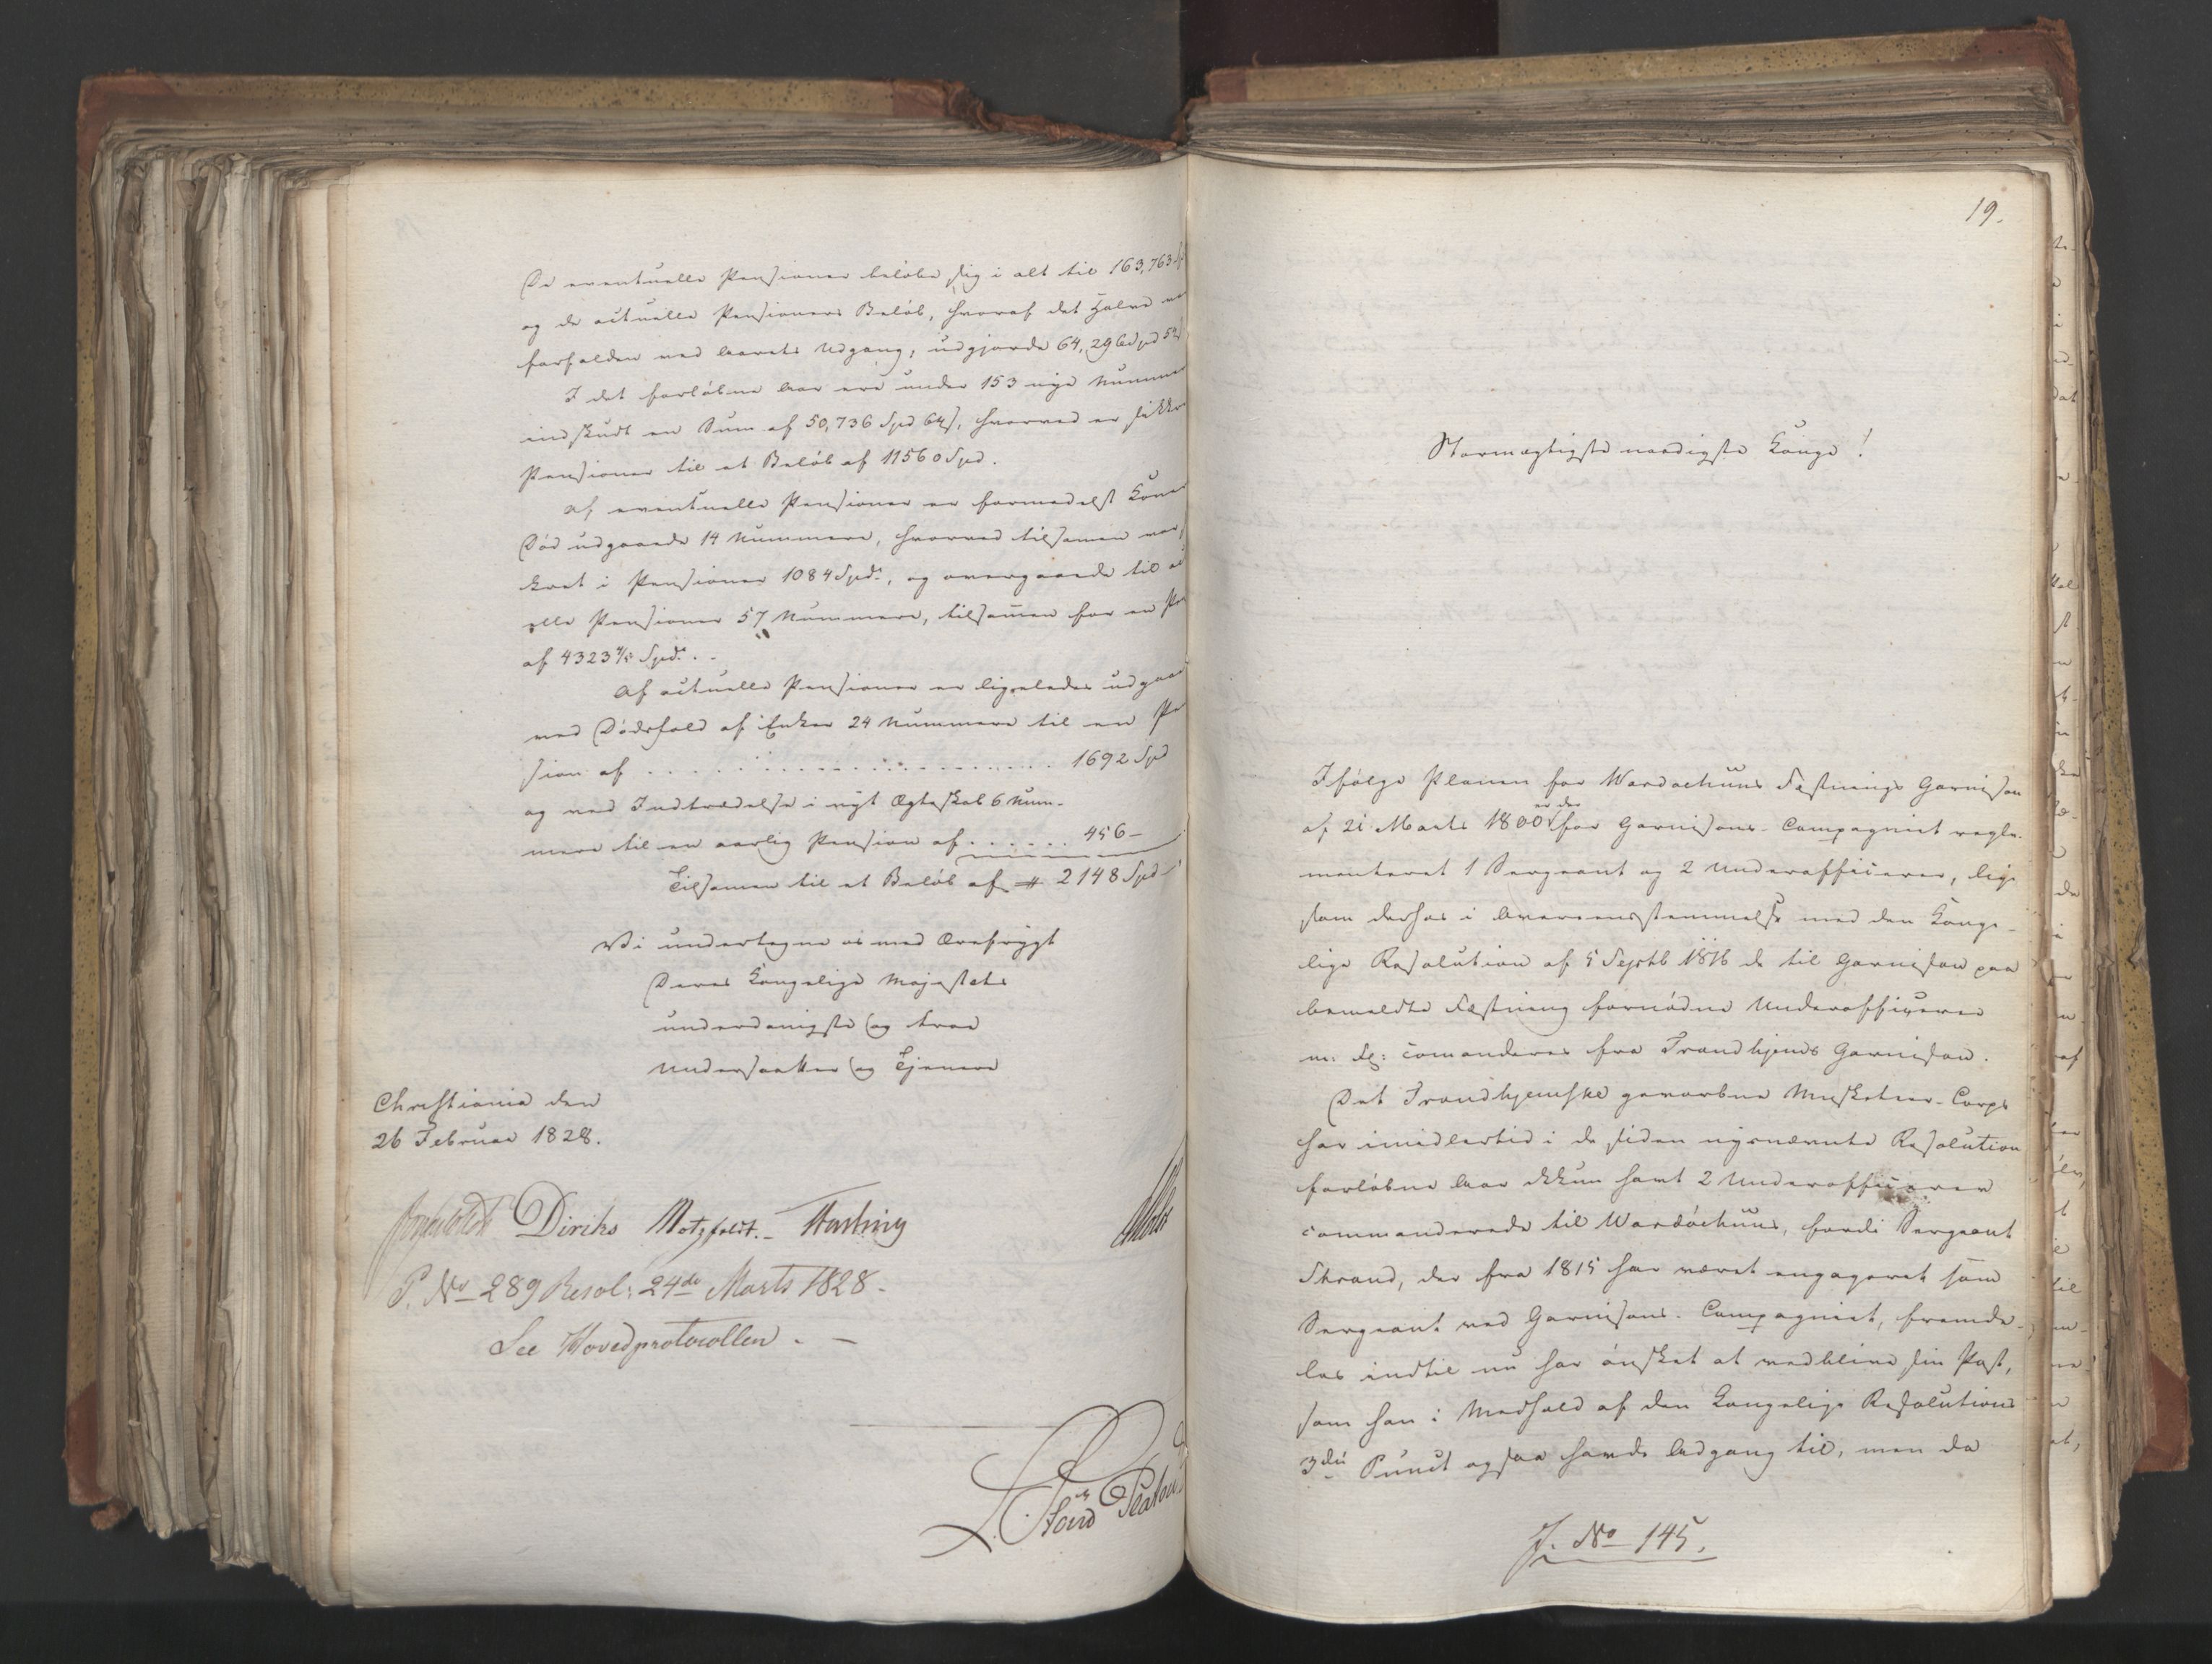 De eventuelle Pensioner beløbe sig i alt til 163,763
og de actuelle Pensioners Beløb, hvoraf det Halve
forfalden ved Aarets Udgang, udgjorde 64,296 Spd 52
I det forløbne Aar ere under 153 nye Numme
indskudt en Sum af 50,736 Spd 64 s, hvorved er sikkr
Pensioner til et Beløb af 11560 Spd.
Af eventuelle Pensioner er formedelst Koner
Død udgaaede 14 Nummere, hvorved tilsamen var
kret i Pensioner 1084 Spdr, og overgaaede til
elle Pensioner 57 Nummere, tilsamen for en Pen
af 4323 Spdr.
Af actuelle Pensioner er ligeledes udgaa
ved Dødsfald af Enker 24 Nummere til en Pen
sion af . . . . . . . . . . 1692 Spd
og ved Indtrædelse i nyt Ægteskab 6 Num-
mere til en aarlig Pension af . . . . . . 456 –
Tilsamen til et Beløb af 2148 Spd
Vi undertegne os med Ærefrygt
Deres Kongelige Majestæts
underdanigste og troe
Undersaatter og Tjenere
Christiania den
26 Februar 1828.
Diriks Motzfeldt. Fasting
P. No 289 Resol: 24de Marts 1828.
See Hovedprotocollen. –
19.
Stormægtigste naadigste Konge!
Ifølge Planen for Wardøehuus Fæstnings Garnison
af 21 Marts 1800 er der for Garnisons-Compagniet regle-
menteret 1 Sergeant og 2 Underofficerer, lige
som derhos i Overeensstemmelse med den Konge-
lige Resolution af 5 Septb 1816 de til Garnison paa
bemeldte Fæstning fornødne Underofficerer
m: Fl: comanderes fra Trondhjems Garnison.
Det Trondhjemske gevorbne Musketeer-Corps
har imidlertid i de siden nysnævnte Resolution
forløbne Aar ikkun havt 2 Underofficerer
commanderede til Wardøehuus, fordi Sergeant
Strand, der fra 1815 har været engageret som
Sergeant ved Garnisons-Compagniet, fremde-
les indtil nu har ønsket at vedblive sin Post,
som han i Medhold af den Kongelige Resolutions
3die Punct ogsaa havde Adgang til, men da
J. No 145.